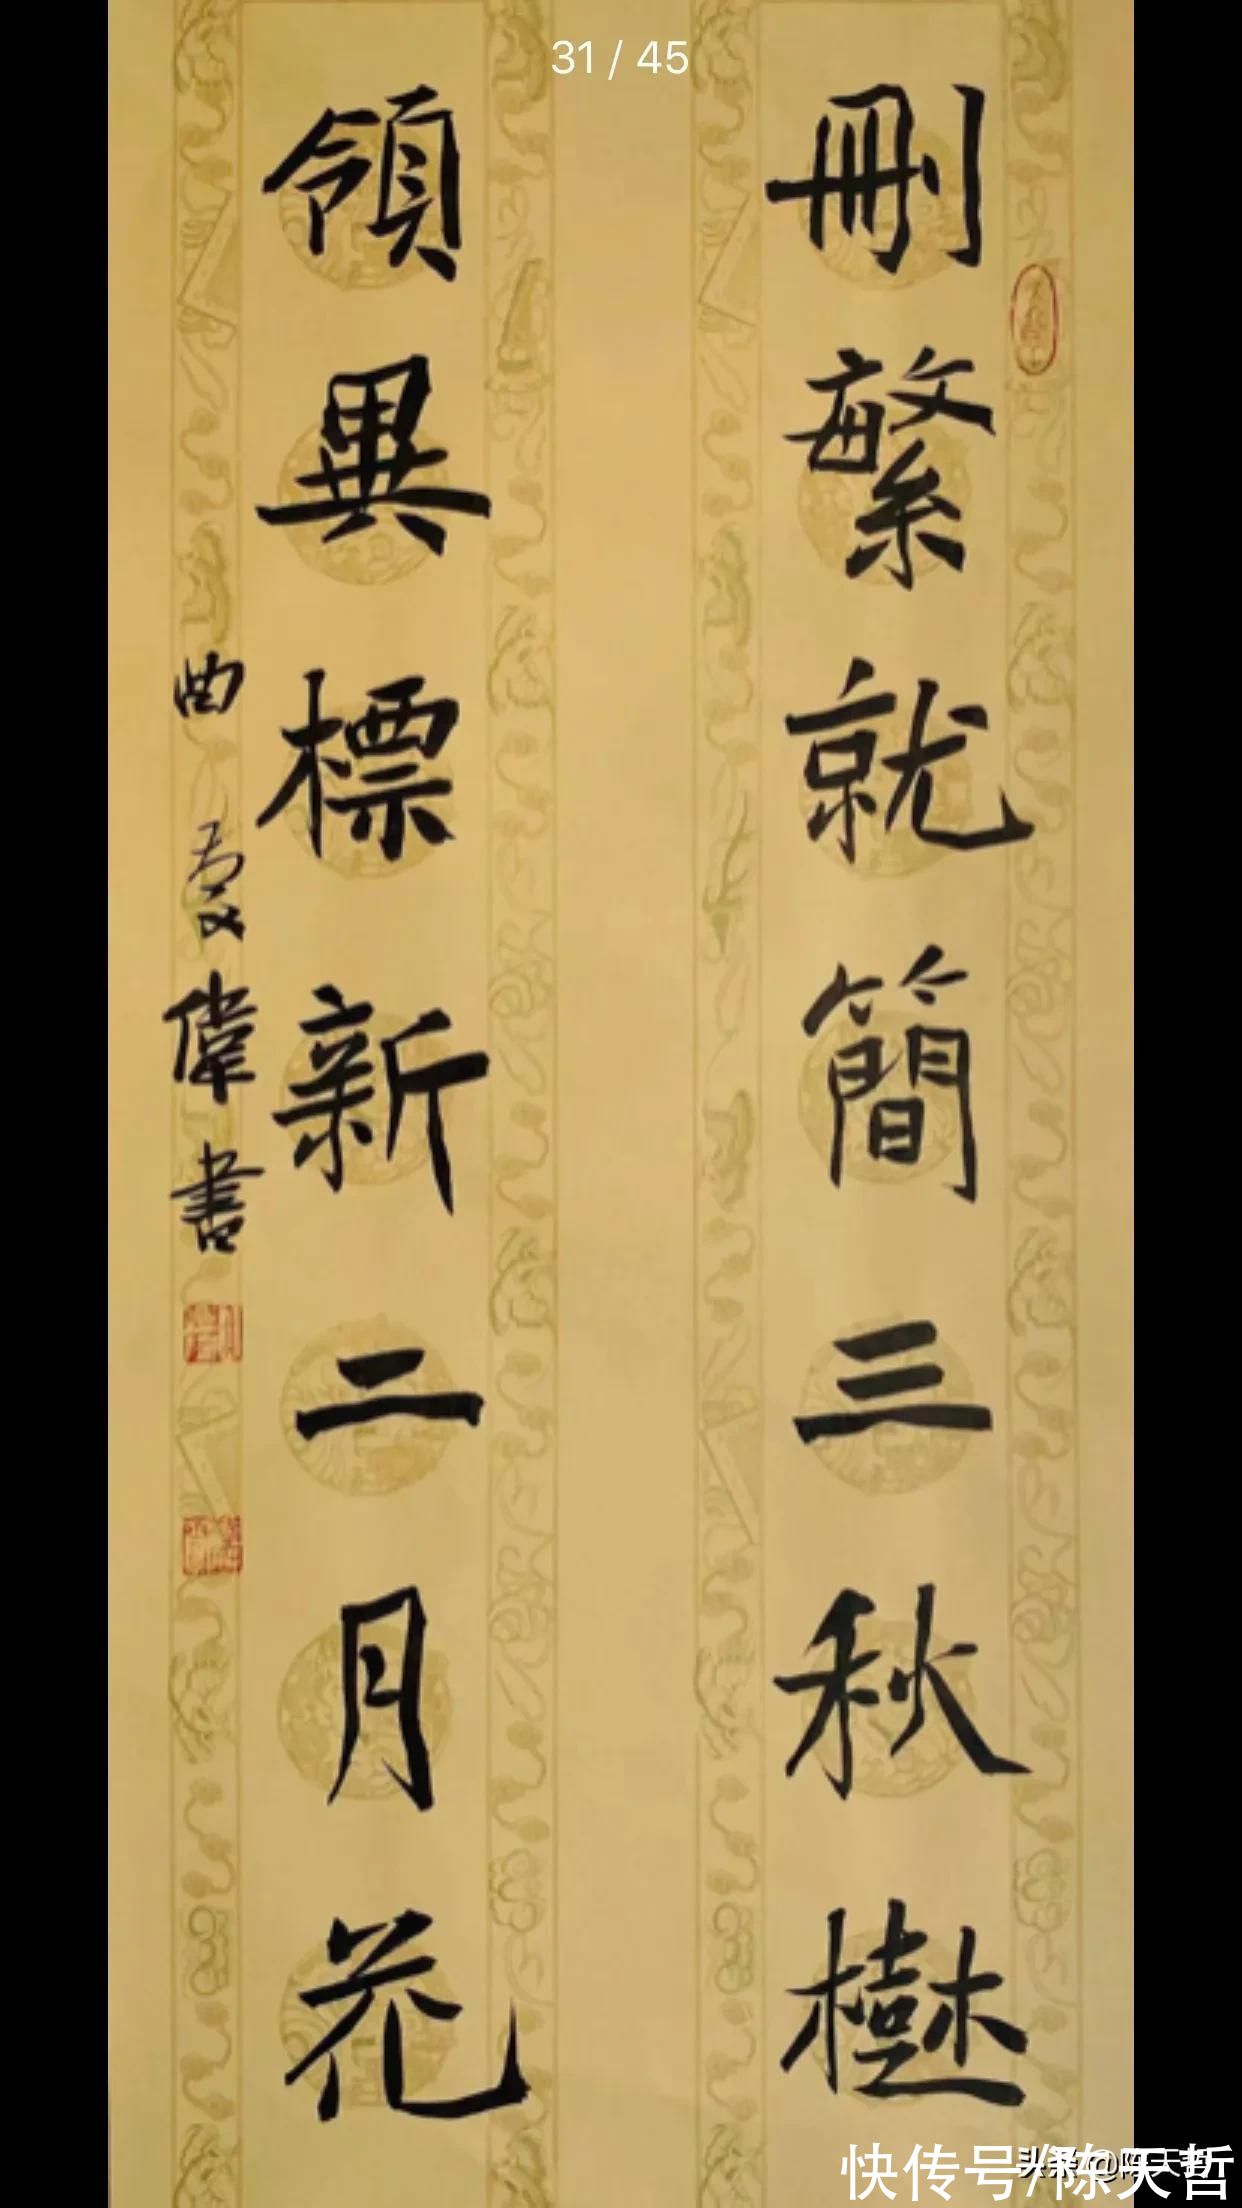 31 / 45
刪繁就簡三秋樹
領異標新二月花
曲
偉書
快传号/陈天哲